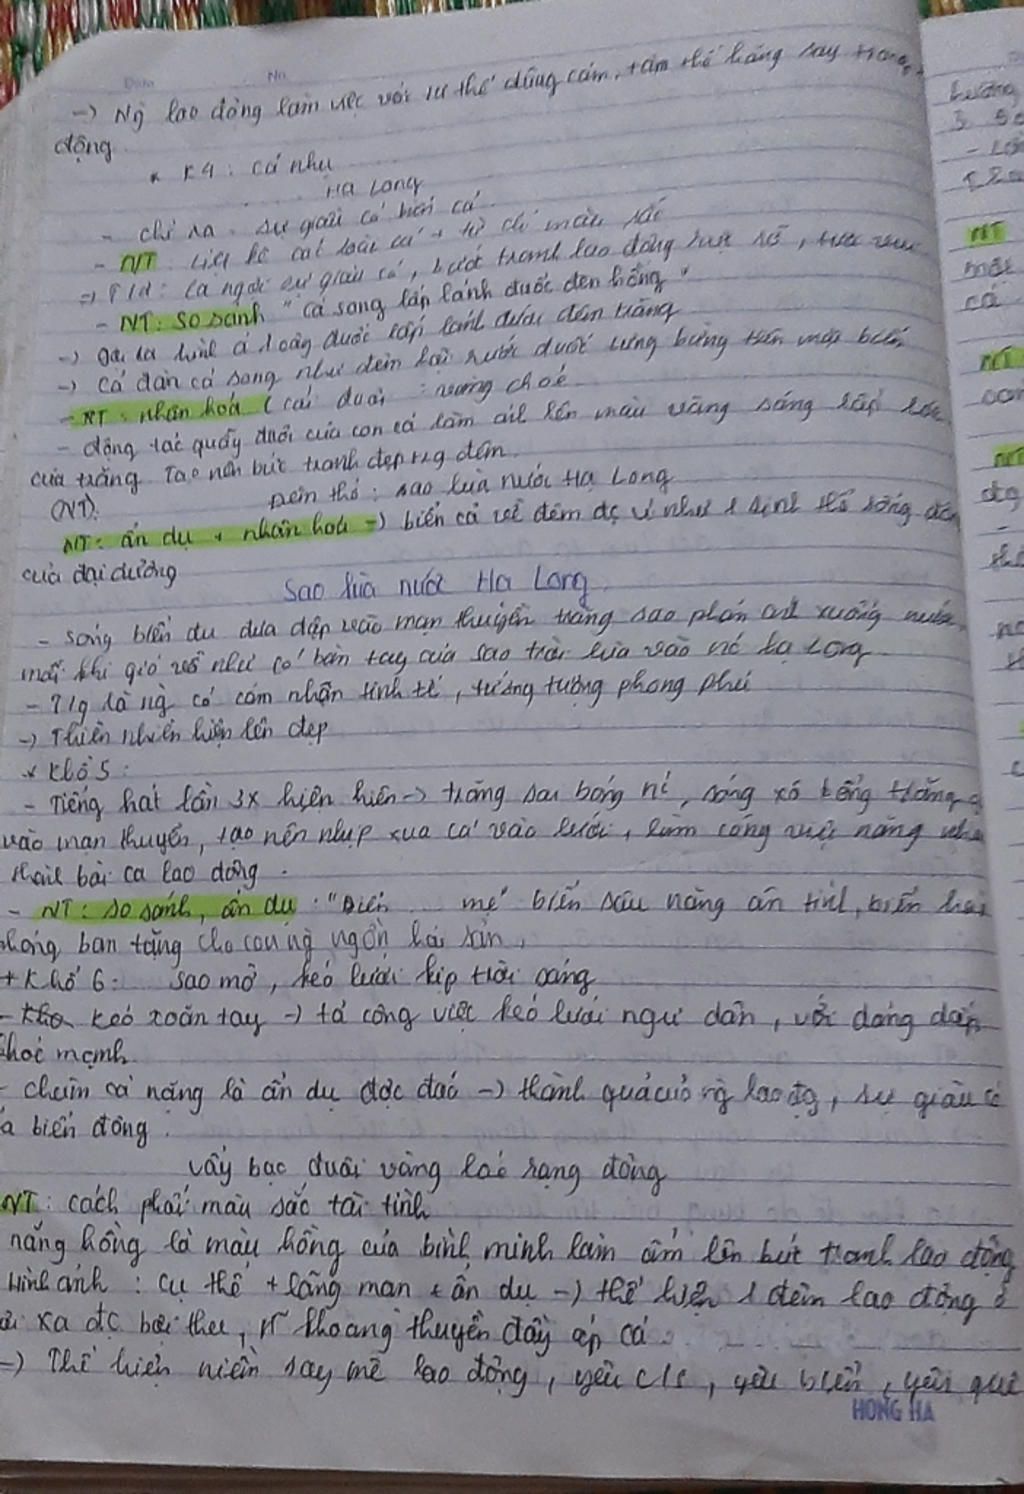 -> Ng lao động làm việc với tư thế dũng cảm, tâm thế hăng say trong
động.
* K4: Cá nhụ
Hạ Long
- chỉ ra sự giàu có biển cả
- NT: liệt kê các loài cá + từ chỉ màu sắc
=> T/d: Ca ngợi sự giàu có, bức tranh lao động rực rỡ,
- NT: So sánh "cá song lấp lánh đuốc đen hồng"
-> Gợi tả hình ả loáng đuôi lấp lánh dưới đêm trăng
-> Cả đàn cá song như đêm hội rước đuốc tưng bừng trên mặt biển
- NT: nhân hoá (cái đuôi : vàng choé
- động tác quẫy đuôi của con cá làm ánh lên màu vàng sáng lấp
của trăng. Tạo nên bức tranh đẹp trg đêm.
(NT).
Đêm thở: sao lùa nước Hạ Long
NT: ẩn dụ + nhân hoá -> biển cả về đêm đc ví như 1 sinh thể sống
của đại dương
Sao lùa nước Hạ Long
- Sóng biển đu đưa đập vào mạn thuyền trăng sao phản ánh xuống nước
mỗi khi gió về như có bàn tay của sao trời lùa vào nc hạ Long
- T/g là ng có cảm nhận tinh tế, tưởng tượng phong phú
-> Thiên nhiên hiện lên đẹp
* Khổ 5:
- Tiếng hát lần 3x hiện hiên -> trăng sao bóng nc, sóng xô bóng trăng
vào mạn thuyền, tạo nên nhịp xua cá vào lưới, làm công việc nặng
thành bài ca lao động.
- NT: so sánh, ẩn dụ: "Biển mẹ" biển sâu nặng ân tình, biển hào
phóng ban tặng cho con ng nguồn hải sản,
+ Khổ 6: sao mờ, kéo lưới kịp trời sáng
- Kéo xoăn tay -> tả công việc kéo lưới ngư dân, với dáng dấp
khoẻ mạnh.
- chùm cá nặng là ẩn dụ độc đáo -> thành quả của ng lao đg, sự giàu có
a biển đông.
vẩy bạc đuôi vàng loé rạng đông
NT: cách phối màu sắc tài tình
nắng hồng là màu hồng của bình minh làm ấm lên bức tranh lao động
Hình ảnh: cụ thể + lãng mạn + ẩn dụ -> thể hiện 1 đêm lao động ở
xa đc bội thu, khoang thuyền đầy ắp cá
=> Thể hiện niềm say mê lao động, yêu c/s, yêu biển, yêu quê
HONG HA
NT
một
cá